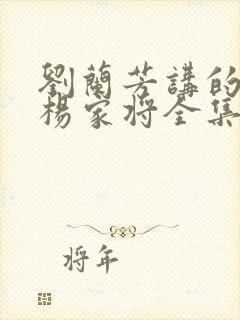 劉蘭芳講的
楊家將全集
將年